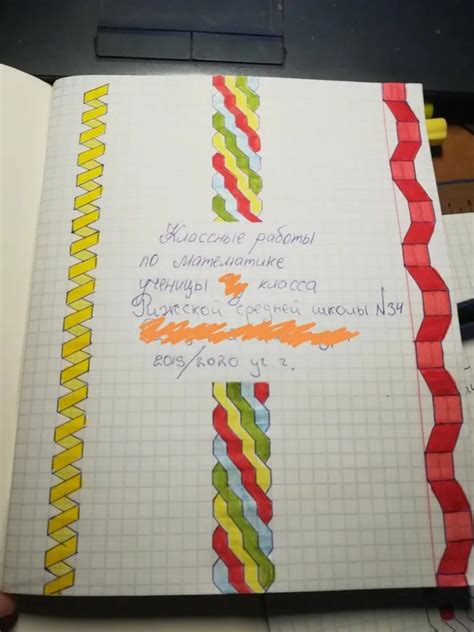 Классные работы
по математике
ученицы класса
Рижской средней школы №34
2019/2020 уч. г.